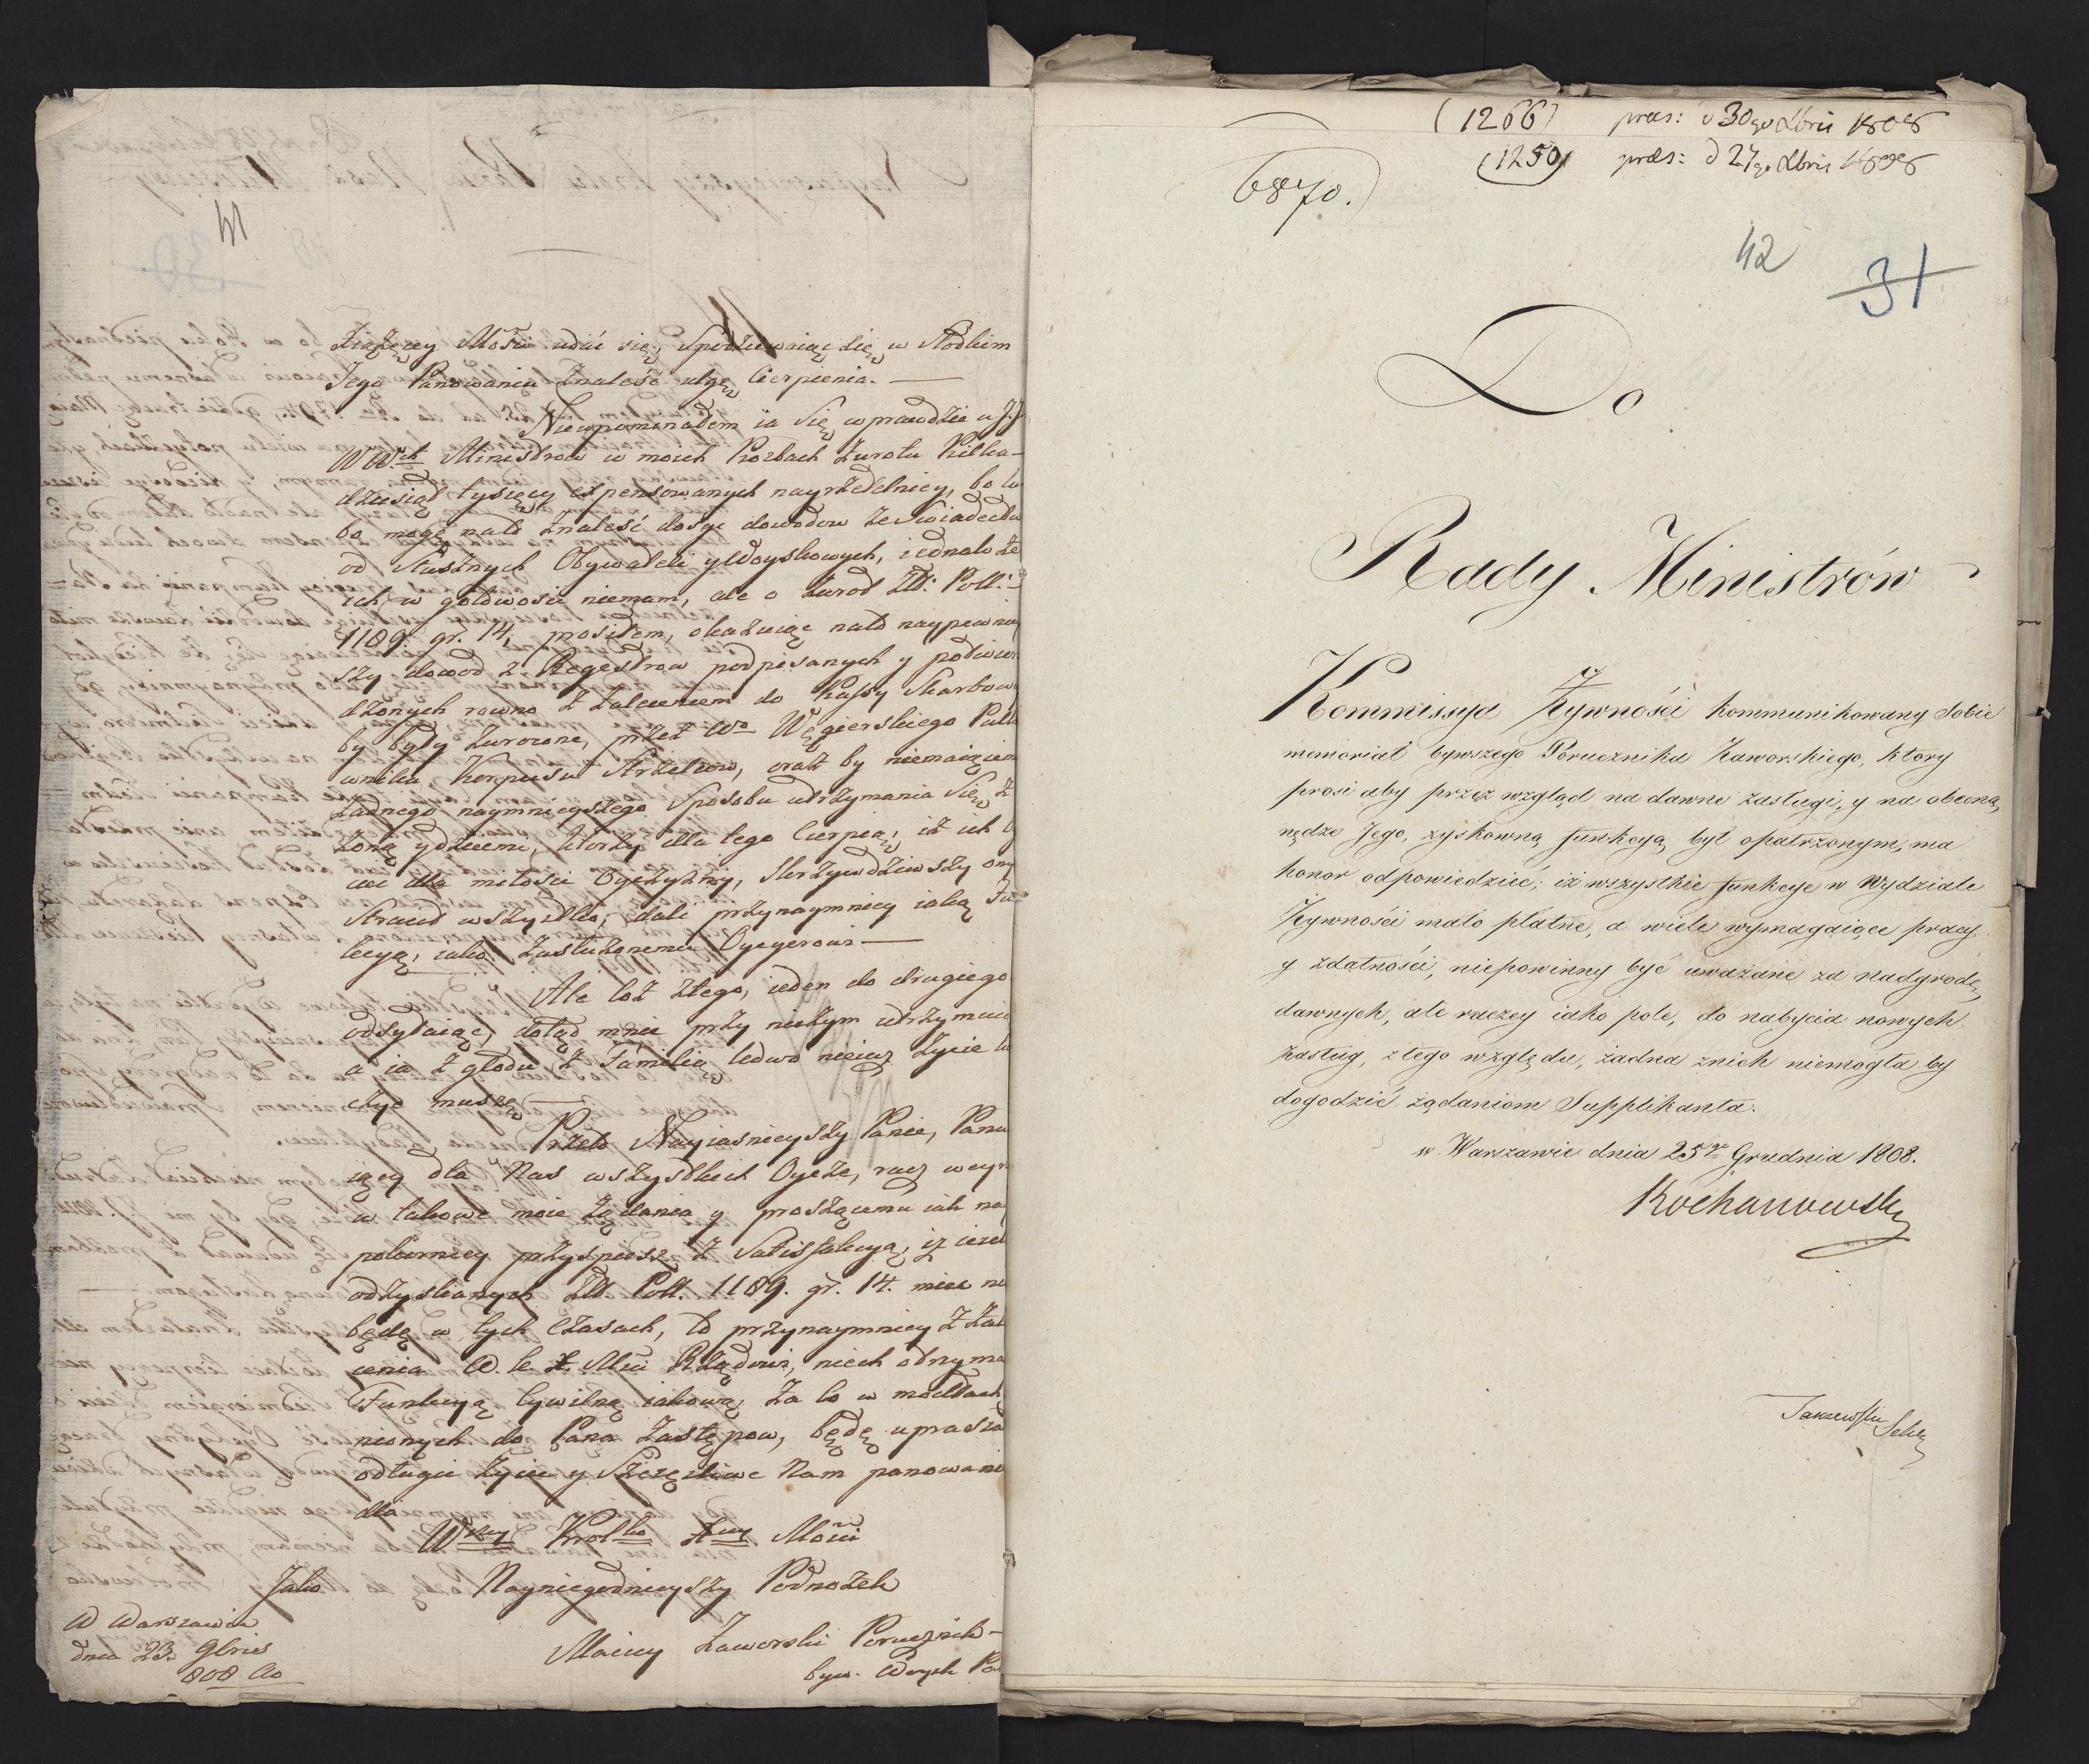 41
Xiążęcey Mości udać się, Spodziewaiąc się w Słodkim
Jego Panowaniu znaleść ulgę Cierpienia. —
Niewpominałem ia Się wprawdzie u J.J.
WW. Ministrow w moich Prozbach zwrotu Kilka-
dziesiąt tysięcy expensowanych nayrzetelniey, bo
bo mogę na to znaleść dosyc dowodow ze Swiadectw
od Słusznych Obywateli y Woyskowych, iednak że
ich w gotowosci niemam, ale o zwrot Złł: Poll:
1189. gr. 14, prosiłem, okazuiąc na to naypewniey
szy dowod z Regestrow podpisanych y potwier
dzonych rowno z zaleceniem do Kassy Skarbowey
by były zwrocone, przez Wo Węgierskiego Pułk
wnika Korpusu Strzelcow, oraz by niemaiącem
żadnego naymnieyszego Sposobu utrzymania Się z
Żoną y dziecmi, ktorzy dla tego Cierpią, iż ich
ciec dla miłosci Oyczyzny, Skrzywdziwszy ony
stracił wszystko, dali przynaymniey iaką Fun
kcyą, iako Zasłużonemu Oycyerowi —
Ale coż z tego, ieden do drugiego
odsyłaiąc, dotąd mnie przy niczym utrzymuią
a ia z głodu z Familią ledwo nieiuż życie
czyc muszę —
Przeto Nayiasnieyszy Panie, Panu
iący dla Nas wszystkich Oycze, racz weyrz
w takowe moie żądania y proszącemu iak nay
pokorniey przyspiesz z Satisfakcyą, iż ieżeli
odzyskanych Złł. Poll. 1189. gr. 14. miec nie
będę w tych czasach, to przynaymniey z Zale
cenia W. K. X. Mci Rządowi, niech otrzyma
Funkcyą Cywilną iakową, za co w modłach
nionych do Pana Zastępow, będę uprasza
o długie życie y Szczęsliwe Nam panowani
dla
Wszey Krolko Xcey Mości
Jako Nayniegodnieyszy Podnożek
W Warszawie
dnia 23. 9bris
808 Ao
Maciey Zaworski Porucznik
byw. Woysk Po
(1266) praes: d 30go Xbris 1808
(1250) praes: d 27go Xbris 1808
6870.
42
31
Do
Rady Ministrów
Kommissya Żywności kommunikowany Sobie
memoriał bywszego Porucznika Zaworskiego, ktory
prosi aby przez wzgląd na dawne zasługi, y na obecną
nędze Jego, zyskowną funkcyą był opatrzonym, ma
honor odpowiedzieć; iż wszystkie funkcye w Wydziale
Żywności mało płatne, a wiele wymagaiące pracy
y zdatności, niepowinny być uważane za nadgrodę
dawnych, ale raczey iako pole, do nabycia nowych
zasług, z tego względu, żadna z nich niemogła by
dogodzić żądaniom Supplikanta.
w Warszawie dnia 25go Grudnia 1808.
Kochanowski